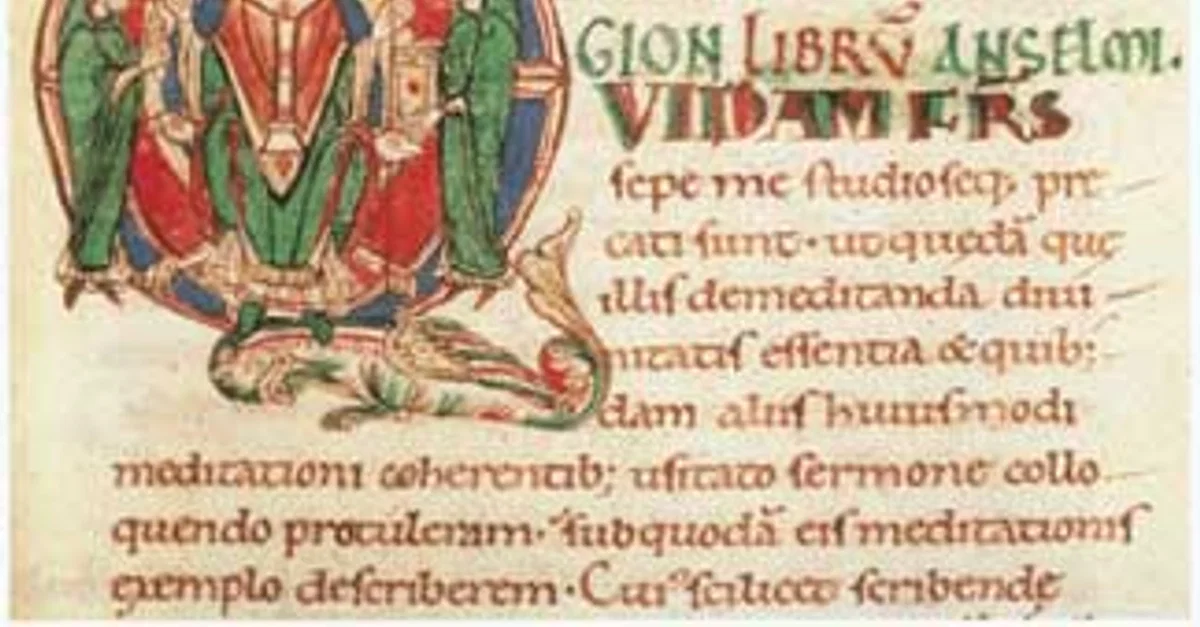 GION LIBRV̄ ANSELMI.
VIDAM FR̄S
sepe me studioseq; pre
cati sunt · ut quędā quę
illis demeditanda diui
nitatis essentia & quib;
dam aliis huiusmodi
meditationi coherentib; usitato sermone collo
quendo protuleram · sub quodā eis meditationis
exemplo describerem · Cuiꝰ scilicet scribendę